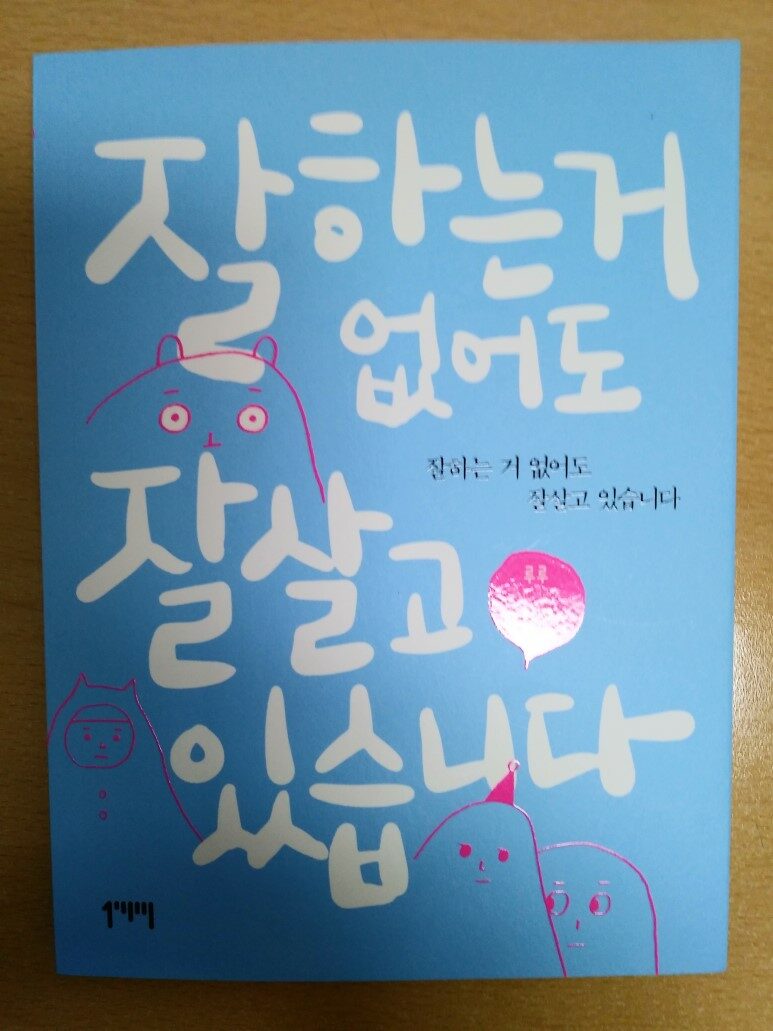 잘하는거
없어도
잘하는 거 없어도
잘살고 있습니다
잘살고
루루
있습니다